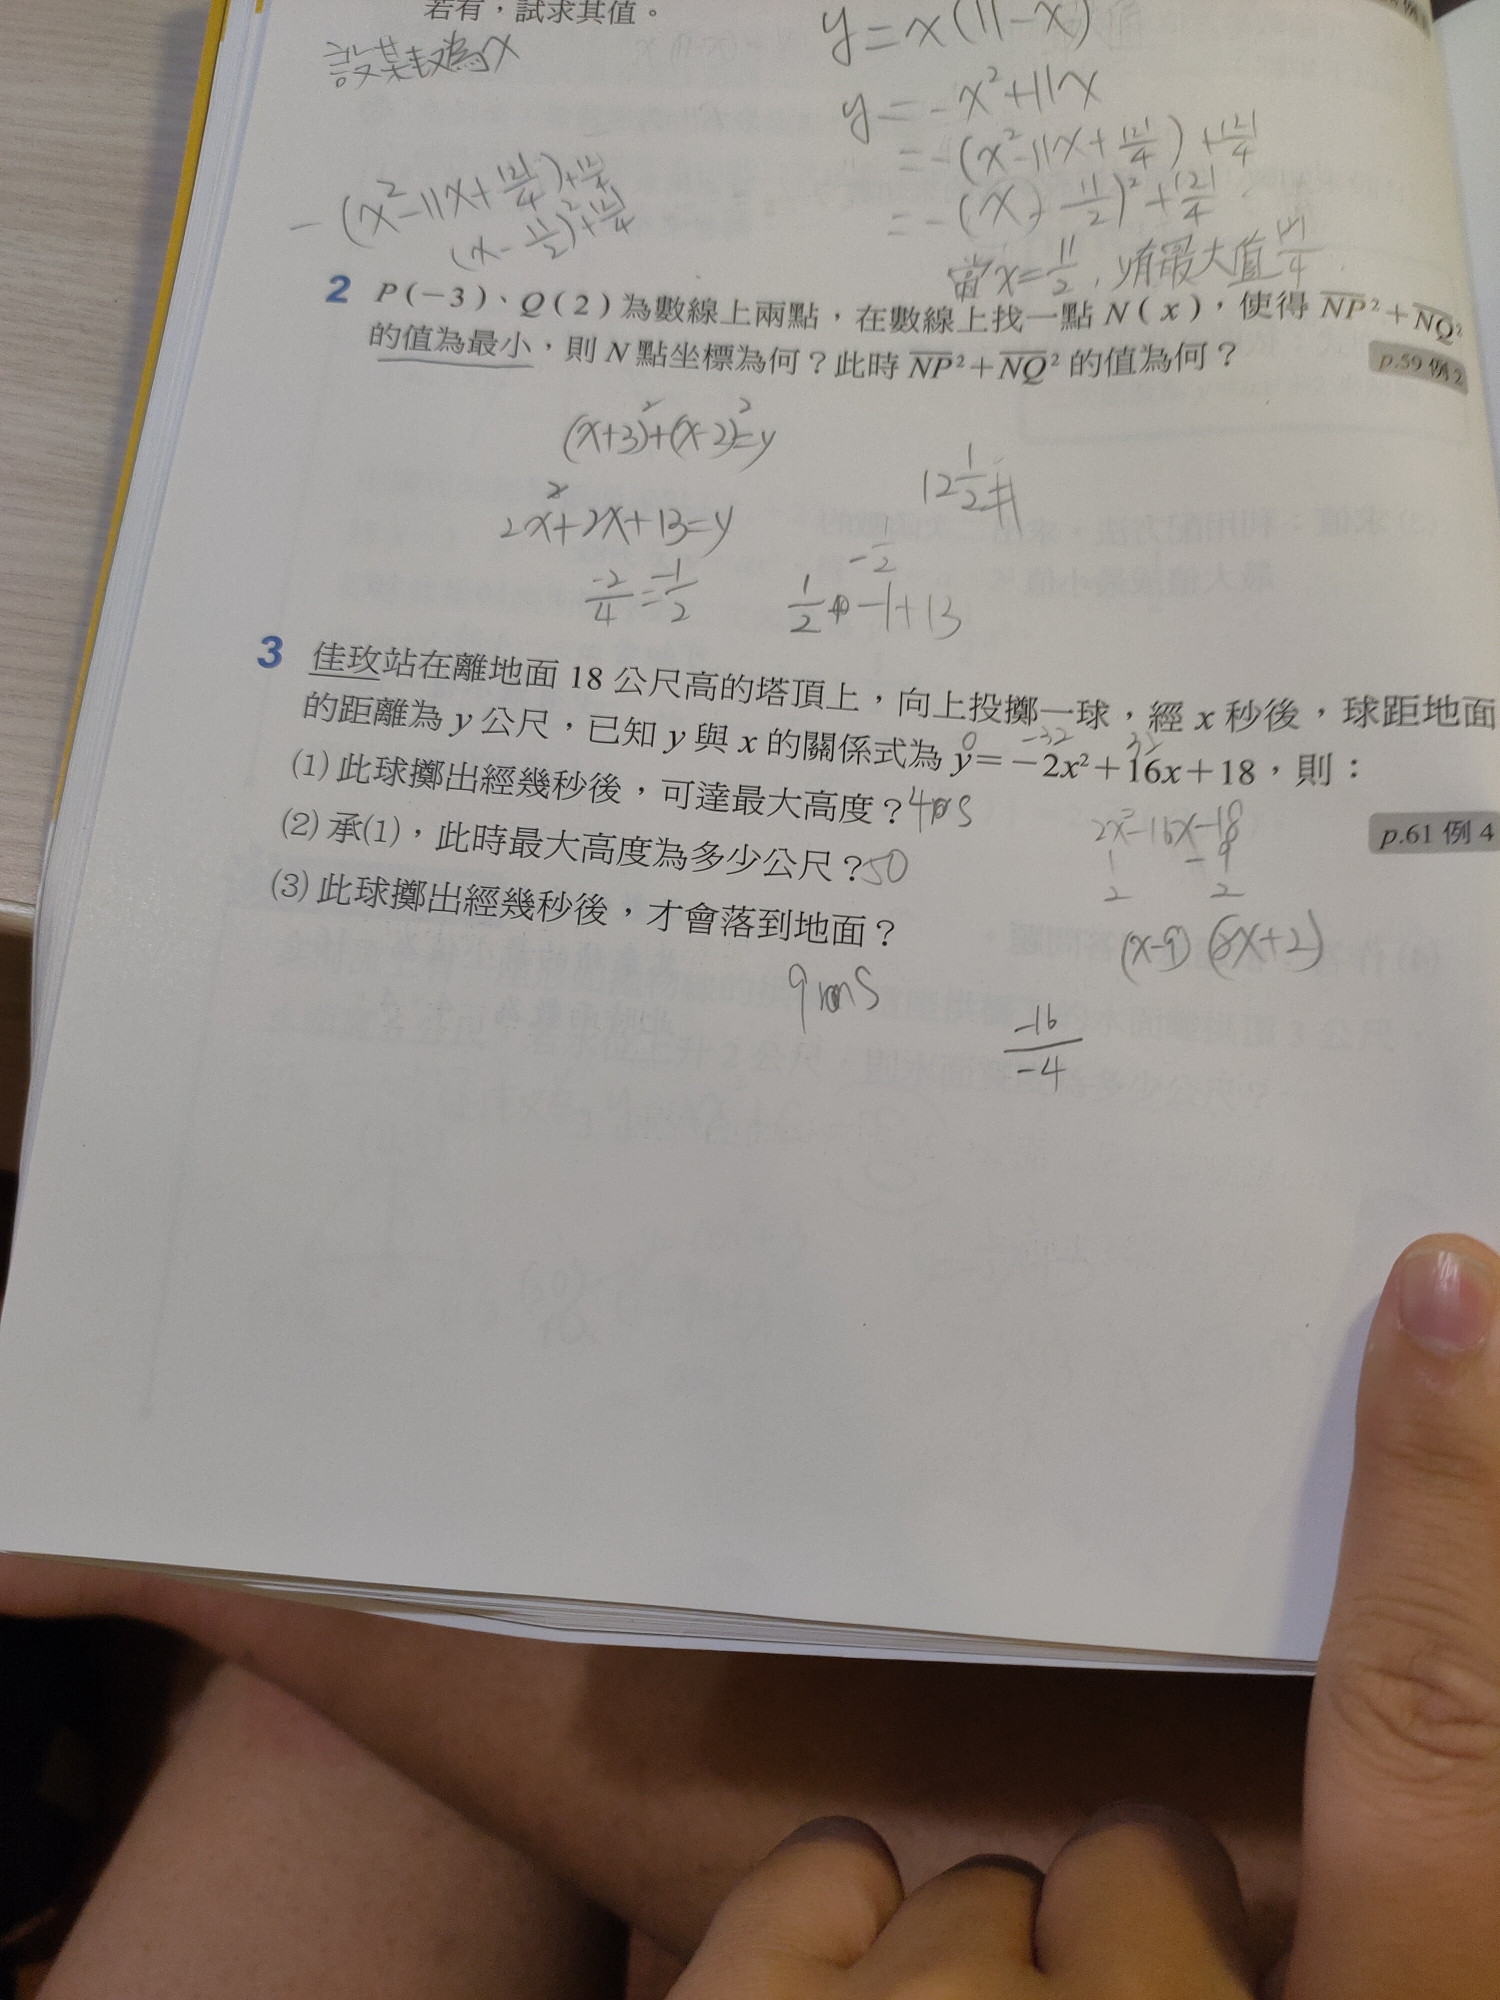 若有，試求其值。
設某數為x
y=x(11-x)
y=-x²+11x
=-(x²-11x+121/4)+121/4
=-(x-11/2)²+121/4
當x=11/2，y有最大值121/4
-(x²-11x+121/4)+121/4
(x-11/2)²+121/4
2 P(-3)、Q(2)為數線上兩點，在數線上找一點N(x)，使得NP²+NQ²
的值為最小，則N點坐標為何？此時NP²+NQ²的值為何？
p.59 例2
(x+3)²+(x-2)²=y
12 1/2
2x²+2x+13=y
-1/2
-2/4=-1/2
1/2 -1+13
3 佳玫站在離地面18公尺高的塔頂上，向上投擲一球，經x秒後，球距地面
的距離為y公尺，已知y與x的關係式為y=-2x²+16x+18，則：
0 -32 32
(1)此球擲出經幾秒後，可達最大高度？4 s
p.61 例4
(2)承(1)，此時最大高度為多少公尺？50
(3)此球擲出經幾秒後，才會落到地面？
2x²-16x-18
1 -9
2 2
(x-9)(2x+2)
9 s
-16/-4